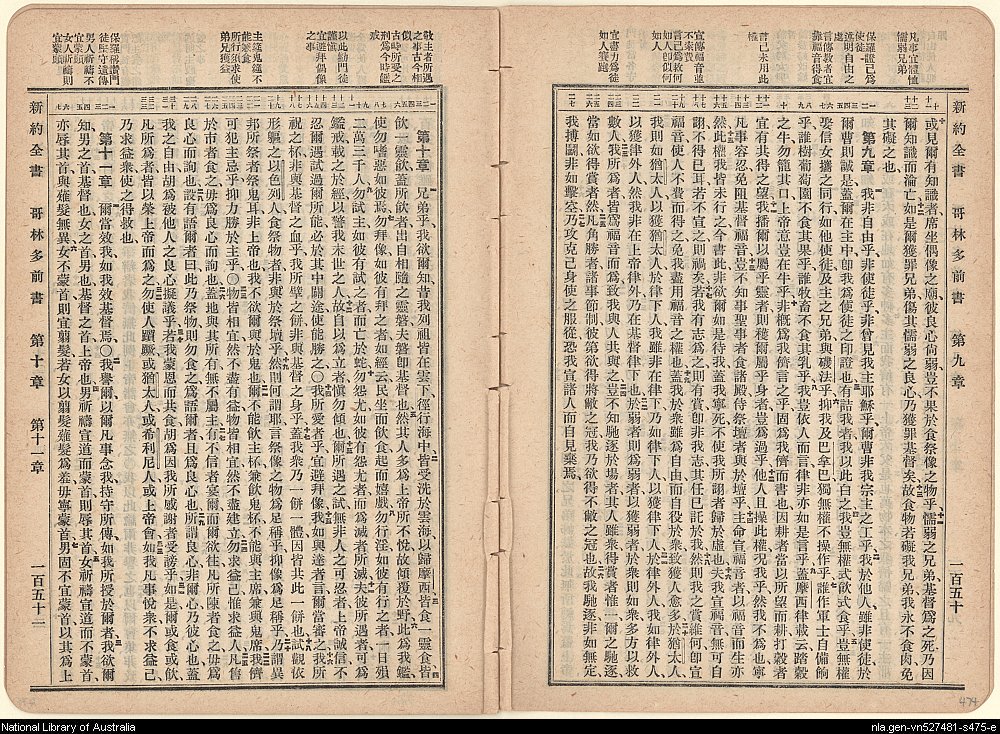 凡事宜體恤
懦弱兄弟
保羅證己爲
使徒
述明自由之
處
言傳教者宜
靠福音得食
書已未用此
權
宣傳福音虛
不索費
言己爲救何
如人卽似何
如人
宜盡力爲徒
如人賽跑
新約全書 哥林多前書 第九章
或見爾有知識者席坐偶像之廟彼良心尚弱豈不果於食祭像之物乎懦弱之兄弟基督爲之死乃因
爾知識而淪亡如是爾獲罪兄弟傷其懦弱之良心乃獲罪基督矣故食物若礙我兄弟我永不食肉免
其礙之也
第九章 我非自由乎非使徒乎非曾見我主耶穌乎爾曹非我宗主之工乎我於他人雖非使徒於
爾曹則誠是蓋爾在主中卽我爲使徒之印證也有詰我者我以此白之我豈無權式飲式食乎豈無權
娶信女攜之同行如他使徒及主之兄弟與磯法乎抑我及巴拿巴獨無權不操作乎誰作軍士自備餉
乎誰樹葡萄園不食其果乎誰牧畜不食其乳乎我豈依人而言律非亦如是言乎蓋摩西律載云踏穀
之牛勿籠其口上帝意豈在牛乎非概爲我儕言之乎固爲我儕而書也因耕者當以所望而耕打穀者
宜有共得之望我播爾以屬乎靈者則穫爾屬乎身者豈爲過乎他人且操此權况我乎然我不爲也寧
凡事容忍免阻基督福音豈不知事聖事者食諸殿侍祭壇者與於壇乎主命宣福音者以福音而生亦
然此權我皆未行之今書此非欲爾如是待我蓋我寧死不使我所詡者歸於虛也夫我宣福音無可自
詡不得已耳若不宣之則禍矣若我有志爲之則有賞卽非我志其任已託於我然則我之賞維何卽宣
福音使人不費而得之免我盡用福音之權也蓋我於衆雖爲自由而自役於衆致獲人愈多於猶太人
我則如猶太人以獲猶太人於律下人我雖非在律下乃如律下人以獲律下人於律外人我如律外人
以獲律外人然我非在上帝律外乃在基督律下也於弱者我則爲弱者以獲弱者於衆則如衆多方以救
數人我所爲者皆爲福音而爲我與人共與之豈不知馳逐於場者其人雖衆得賞者惟一爾之馳逐
當如欲得賞者然凡角勝者諸事節制彼第欲得將敝之冠我乃欲得不敝之冠也故我馳逐非如無定
我搏鬭非如擊空乃攻克己身使之服從恐我宣諸人而自見棄焉
敎主者所遇
之事古今相
似
古時所受之
刑爲今時經
戒
以此勸門徒
謹慎
宜避拜偶像
之事
主筵鬼筵不
能兼食
所行須求使
弟兄獲益
保羅稱讚門
徒堅守遺傳
男人祈禱
宜蒙頭
女人祈禱則
宜蒙頭
第十章 兄弟乎我欲爾知昔我列祖皆在雲下徑行海中皆受洗於雲海以歸摩西皆食一靈食皆
飲一靈飲蓋所飲者出自相隨之靈磐夫磐卽基督也然其人多爲上帝所不悅故傾覆於野此爲我鑑
使勿嗜惡如彼焉勿拜像如彼有拜之者如經云民坐而飲食起而嬉戲勿行淫如彼有行之者一日殞
二萬三千人勿試主如彼有試之者而亡於蛇勿怨尤如彼有怨尤者而爲滅者所滅夫彼所遇者可爲
鑑戒載之於經以警我末世之人故自以爲立者愼勿傾也爾所遇之試無非人之可忍者上帝誠信不
忍爾遇試過爾所能必於其中闢途使能勝之〇我所愛者乎宜避拜像我如與達者言爾當審之我所
祝之杯非與基督之血乎我所擘之餅非與基督之身乎蓋我衆乃一餅一體因皆共此一餅也試觀依
形軀之以色列人食祭物者非與於祭壇乎然則何謂耶言祭像之物爲足稱乎抑像爲足稱乎乃謂異
邦所祭者祭鬼耳非上帝也我不欲爾與於鬼也爾不能飲主杯兼飲鬼杯不能與主席兼與鬼席我儕
可犯主忌乎抑力勝於主乎〇物皆相宜然不盡有益物皆相宜然不盡建立勿求益己惟求益人凡售
於市者食之毋爲良心而詢也蓋地與其所有無不屬主有不信者宴爾而爾欲往凡所陳者食之毋爲
良心而詢也設有語爾者曰此乃祭物則勿食之爲語爾者且爲良心也所謂良心非爾心乃彼心也蓋
我之自由胡爲被他人之良心擬議乎若我蒙恩而共食胡爲因我所感謝者受謗乎如是爾或食或飲
凡所爲者皆以榮上帝而爲之勿使人躓蹶或猶太人或希利尼人或上帝會如我凡事悅衆不求益己
乃求益衆使之得救也
第十一章 爾當效我如我效基督焉〇我譽爾以爾凡事念我持守所傳如我所授於爾者我欲爾
知男之首基督也女之首男也基督之首上帝也男祈禱宣道而蒙首則辱其首女祈禱宣道而不蒙首
亦辱其首與薙髮無異女不蒙首則宜翦髮若女以翦髮薙髮爲羞毋寧蒙首男固不宜蒙首以其爲上
新約全書 哥林多前書 第十章 第十一章 一百五十二
474
National Library of Australia
nla.gen-vn527481-s475-e